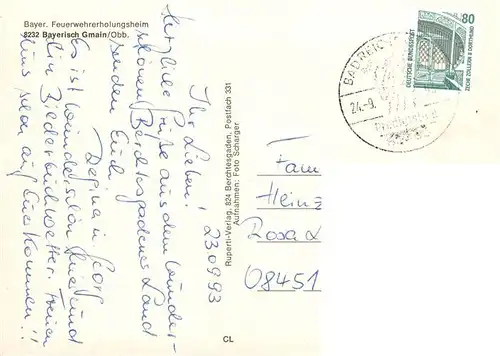 Bayer. Feuerwehrerholungsheim
8232 Bayerisch Gmain/Obb.
23.09.93
Ihr Lieben!
Herzliche Grüße aus dem wunder-
schönen Berchtesgadener Land
senden Euch
Georg
Es ist wunderschön hier und
ein Bilderbuchwetter. Freuen
uns schon auf Euer Kommen!!
Ruperti-Verlag, 824 Berchtesgaden, Postfach 331
Aufnahmen: Foto Scharger
CL
80
DEUTSCHE BUNDESPOST
ZECHE ZOLLERN II DORTMUND
BAD REIC
24.-9.
Fam
Heinz
Rosa L
08451